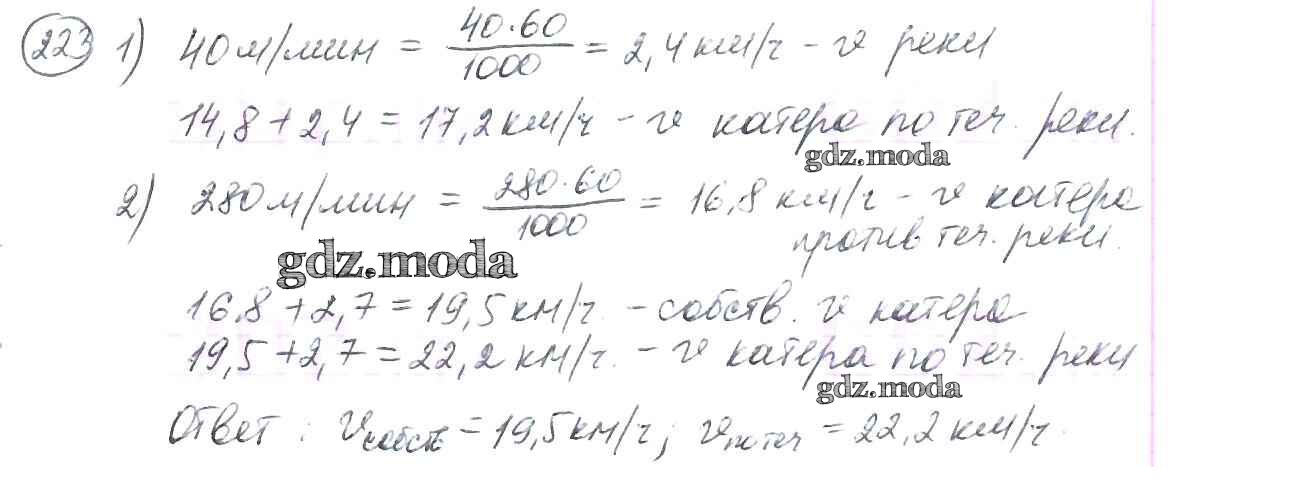 223 1) 40 м/мин = 40·60/1000 = 2,4 км/ч - v реки
14,8 + 2,4 = 17,2 км/ч - v катера по теч. реки.
gdz.moda
2) 280 м/мин = 280·60/1000 = 16,8 км/ч - v катера
против теч. реки.
gdz.moda
16,8 + 2,7 = 19,5 км/ч - собств. v катера
19,5 + 2,7 = 22,2 км/ч. - v катера по теч. реки
gdz.moda
Ответ: v собств = 19,5 км/ч; v по теч = 22,2 км/ч.